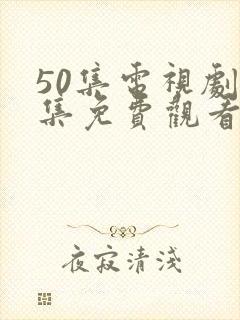 50集電視劇
集免費觀看
夜寂清淺